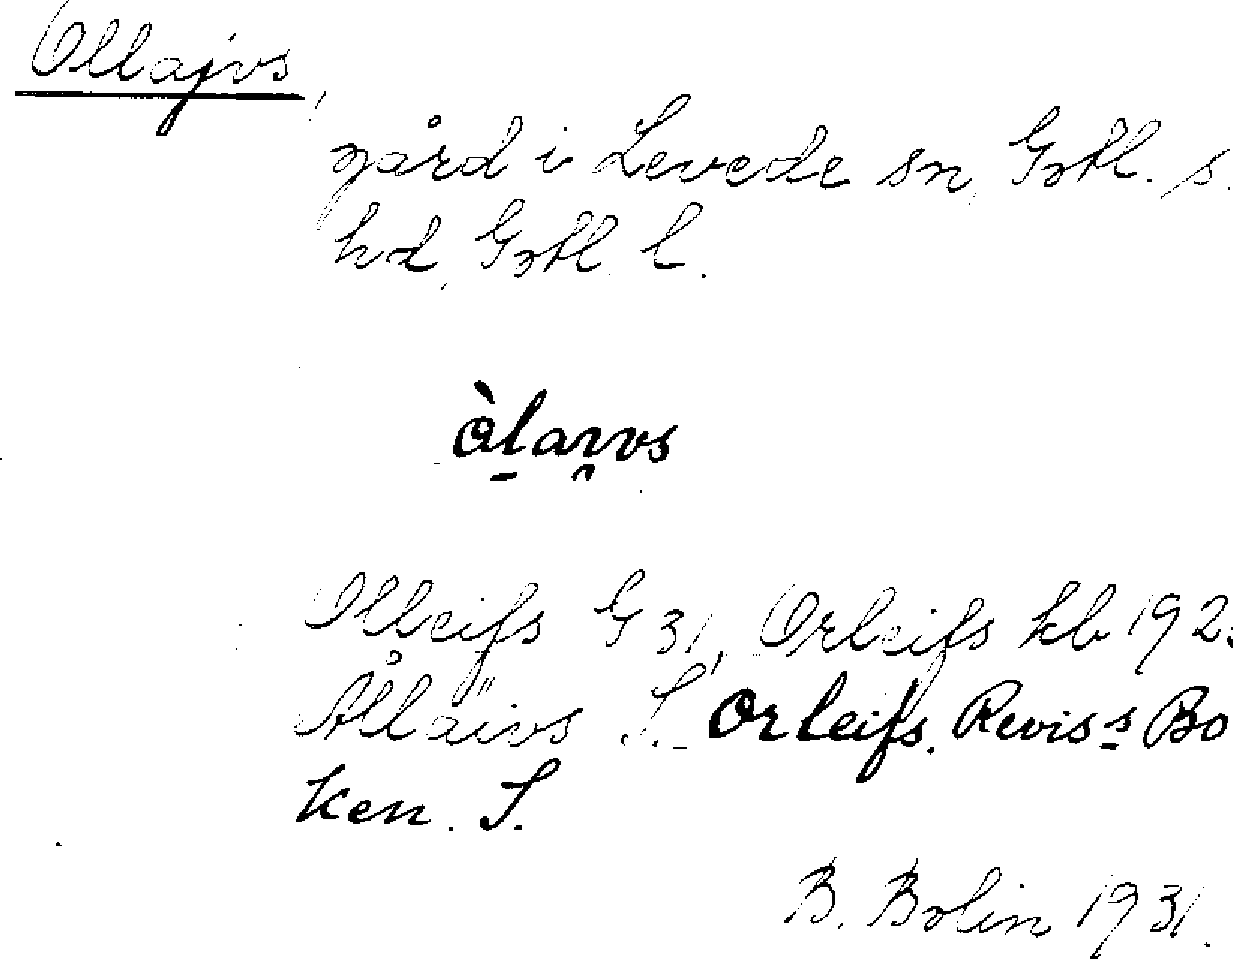 Ollajvs,
gård i Levede sn, Gotl. s.
hd, Gotl. l.
Olleifs G 31, Orleifs kb 192
Ållaivs S. Orleifs. Reviss Bo
ken. S.
B. Bolin 1931.